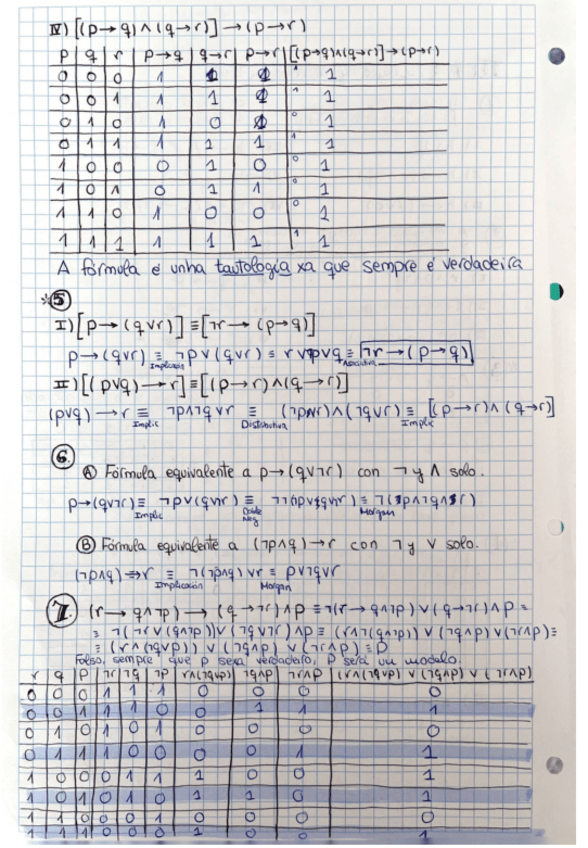 IV) [(p→q) ∧ (q→r)] → (p→r)
p q r p→q q→r p→r [(p→q)∧(q→r)]→(p→r)
0 0 0 1 1 1 1 1
0 0 1 1 1 1 1 1
0 1 0 1 0 1 1
0 1 1 1 1 1 1 1
1 0 0 0 1 0 0 1
1 0 1 0 1 1 0 1
1 1 0 1 0 0 0 1
1 1 1 1 1 1 1 1
A fórmula é unha tautologia xa que sempre é verdadeira
*5
I) [p→ (q∨r)] ≡ [¬r→ (p→q)]
p→ (q∨r) ≡ ¬p∨(q∨r) ≡ r∨¬p∨q ≡ ¬r→(p→q)
Implicación Asociativa
II) [(p∨q)→r] ≡ [(p→r)∧(q→r)]
(p∨q)→r ≡ ¬p∧¬q∨r ≡ (¬p∨r)∧(¬q∨r) ≡ [(p→r)∧(q→r)]
Implic Distributiva Implic
6.
A Fórmula equivalente a p→(q∨¬r) con ¬ y ∧ solo.
p→(q∨¬r) ≡ ¬p∨(q∨¬r) ≡ ≡ ¬(p∧¬q∧r)
Implic Doble Neg Morgan
B Fórmula equivalente a (¬p∧q)→r con ¬ y ∨ solo.
(¬p∧q)→r ≡ ¬(¬p∧q)∨r ≡ p∨¬q∨r
Implicación Morgan
7. (r→q∧¬p)→ (q→¬r)∧p ≡ ¬(r→q∧¬p)∨(q→¬r)∧p ≡
≡ ¬(¬r∨(q∧¬p))∨(¬q∨¬r)∧p ≡ (r∧¬(q∧¬p))∨(¬q∧p)∨(¬r∧p) ≡
≡ (r∧(¬q∨p))∨(¬q∧p)∨(¬r∧p) ≡ p
Falso, sempre que p sexa verdadeiro, p será un modelo.
r q p ¬r ¬q ¬p r∧(¬q∨p) ¬q∧p ¬r∧p (r∧(¬q∨p)) ∨ (¬q∧p) ∨ (¬r∧p)
0 0 0 1 1 1 0 0 0 0
0 0 1 1 1 0 0 1 1 1
0 1 0 1 0 1 0 0 0 0
0 1 1 1 0 0 0 0 1 1
1 0 0 0 1 1 1 0 0 1
1 0 1 0 1 0 1 1 0 1
1 1 0 0 0 1 0 0 0 0
1 1 1 0 0 0 1 0 0 1